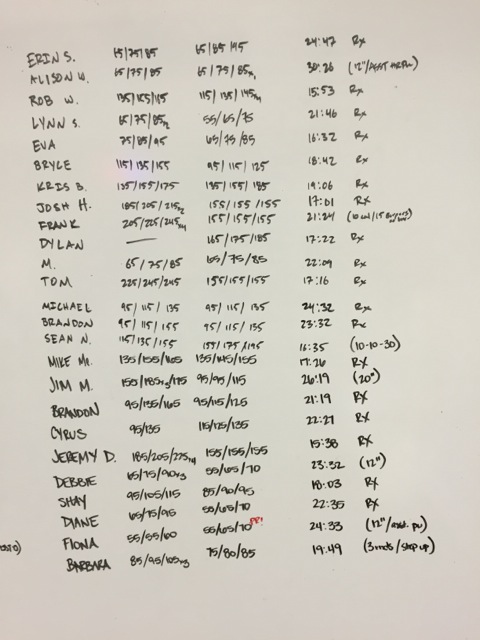 ERIN S. 65/75/85 65/85/95 24:47 Rx
ALISON W. 65/75/85 65/75/85x1 30:26 (12"/ASST HR Pu)
ROB W. 135/155/115 115/135/145x4 15:53 Rx
LYNN S. 65/75/85x2 55/65/75 21:46 Rx
EVA 75/85/95 65/75/85 16:32 Rx
BRYCE 115/135/155 95/115/125 18:42 Rx
KRIS B. 135/155/175 135/155/185 19:06 Rx
JOSH H. 185/205/215x2 155/155/155 17:01 Rx
FRANK 205/225/245x4 155/155/155 21:24
DYLAN — 165/175/185 17:22 Rx
M. 65/75/85 65/75/85 22:09 Rx
TOM 225/245/245 155/155/155 17:16 Rx
MICHAEL 95/115/135 95/115/135 24:32 Rx
BRANDON 95/115/155 95/115/135 23:32 Rx
SEAN N. 115/135/155 155/175/195 16:35 (10-10-30)
MIKE Mc. 135/155/165 135/145/155 17:26 RX
JIM M. 155/185x3/175 95/95/115 26:19 (20")
BRANDON 95/135/165 95/115/125 21:19 RX
CYRUS 95/135 115/125/135 22:27 RX
JEREMY D. 185/205/225x4 155/155/155 15:38 RX
DEBBIE 65/75/90x3 55/65/70 23:32 (12")
SHAY 95/105/115 85/90/95 18:03 RX
DIANE 65/75/95 50/65/70 22:35 RX
FIONA 55/55/60 55/65/70 PR! 24:33 (12"/asst. pu)
BARBARA 85/95/105x3 75/80/85 19:49 (3 rnds/step up)